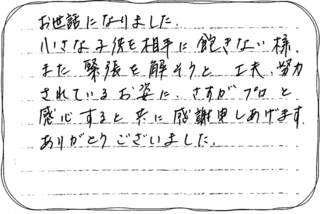 お世話になりました.
小さな子供を相手に飽きない様.
また緊張を解そうと工夫.努力
されているお姿に.さすがプロと
感心すると共に感謝申しあげます.
ありがとうございました.